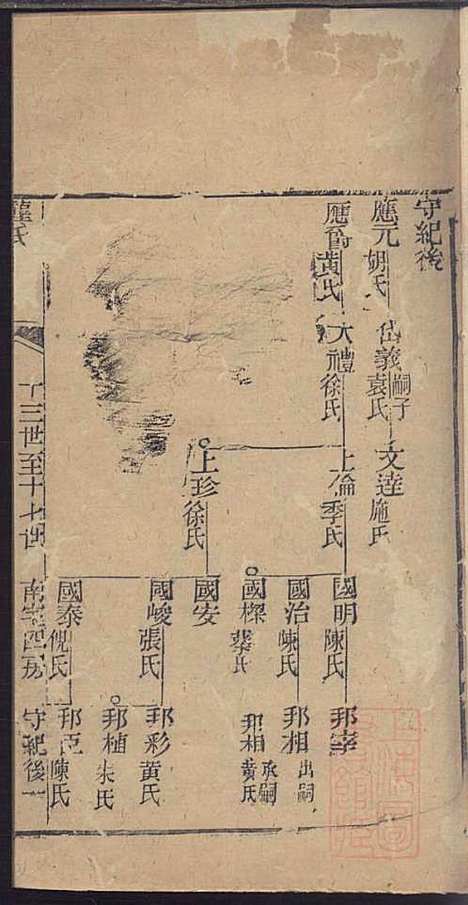 守紀後
應元 胡氏 岱義 嗣子 袁氏 文達 施氏
應 黃氏 大禮 徐氏 上倫 季氏 國明 陳氏 邦宰
國治 陳氏 邦相 出嗣
國樑 蔡氏 邦相 承嗣 黃氏
上珍 徐氏 國安
國峻 張氏 邦彩 黃氏
邦植 朱氏
國泰 倪氏 邦臣 陳氏
氏 十三世至十七世 南宅四房 守紀後一